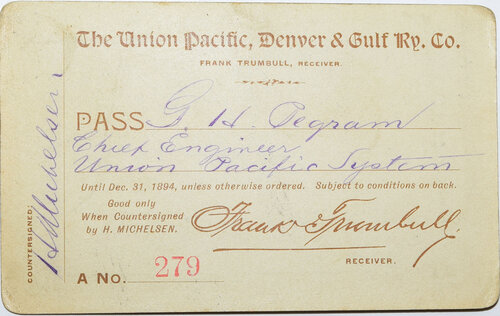 The Union Pacific, Denver & Gulf Ry. Co.
FRANK TRUMBULL, RECEIVER.
PASS G. H. Pegram
Chief Engineer
Union Pacific System
Until Dec. 31, 1894, unless otherwise ordered. Subject to conditions on back.
Good only
When Countersigned
by H. MICHELSEN.
Frank Trumbull.
RECEIVER.
A No. 279
COUNTERSIGNED:
H Michelsen